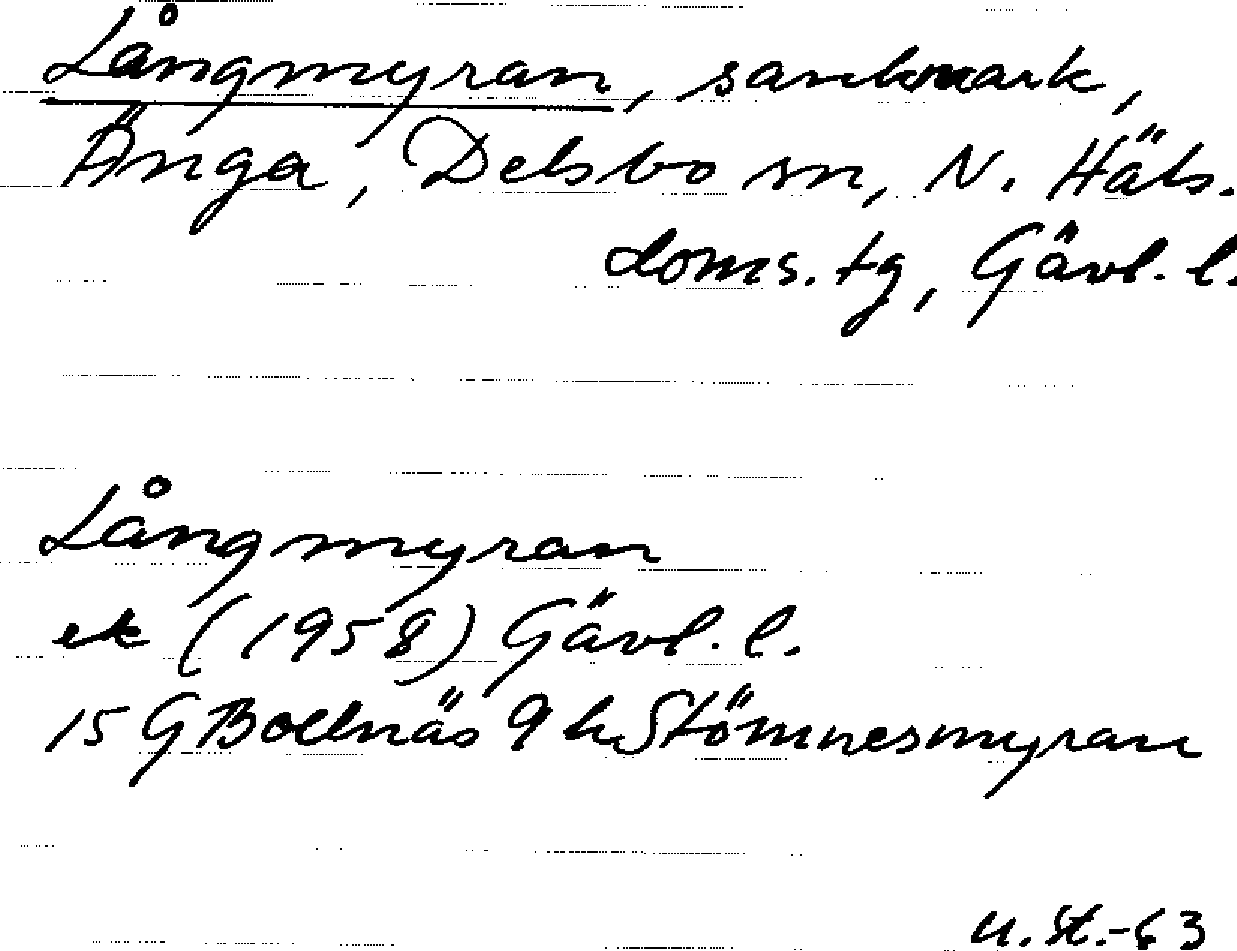 Långmyran, sankmark,
Änga, Delsbo sn, N. Häls.
doms. tg, Gävl. l.
Långmyran
ek (1958) Gävl. l.
15 G Bollnäs 9 h Stömnesmyran
u. St.-63